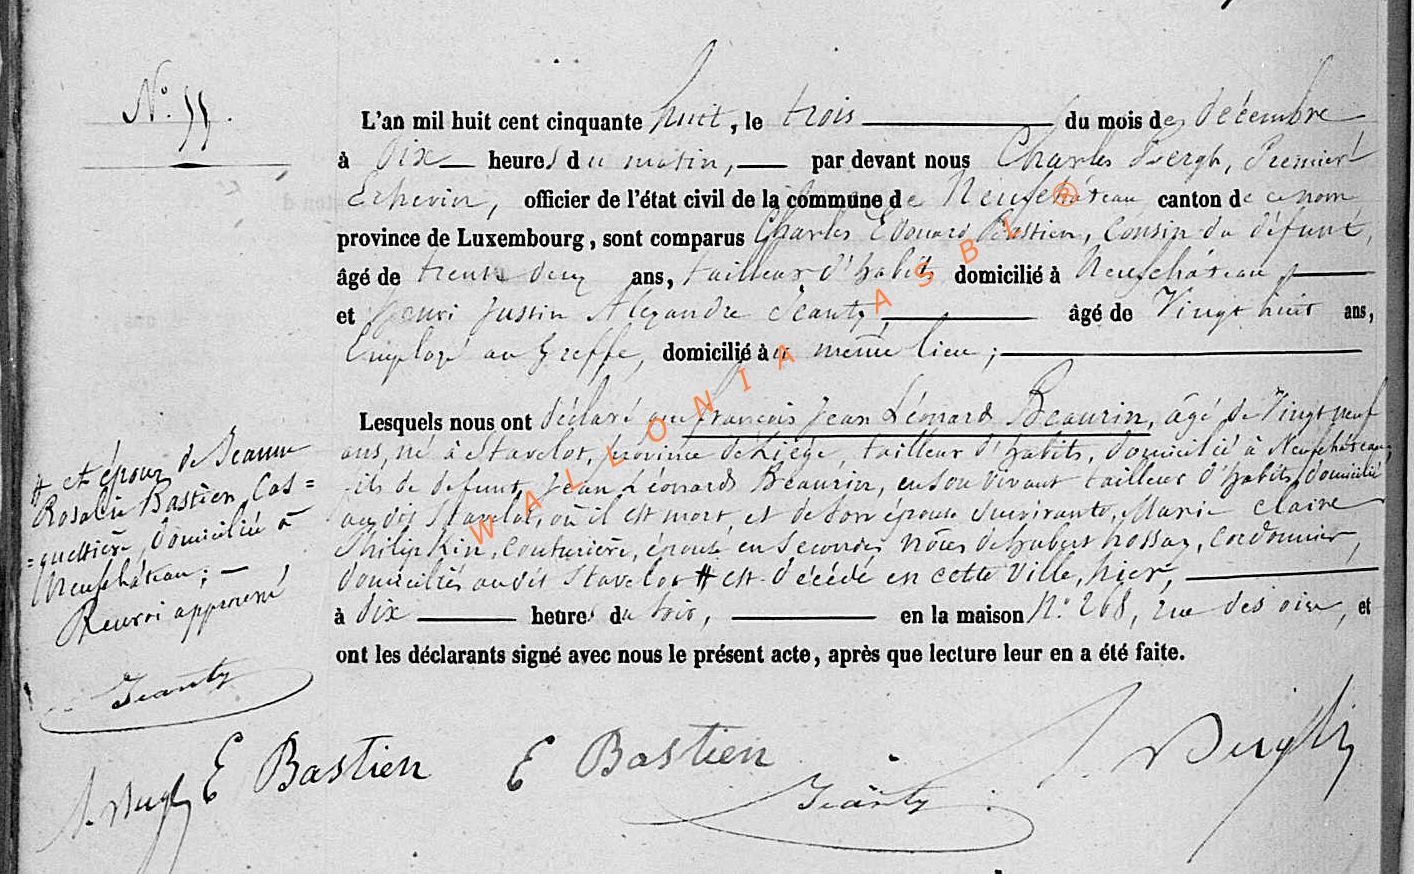 N.° 55.
L'an mil huit cent cinquante huit, le trois du mois de décembre
à Dix heures du matin, par devant nous Charles Bergh, Premier
Echevin, officier de l'état civil de la commune de Neufchâteau canton de ce nom
province de Luxembourg, sont comparus Charles Edouard Bastien, Cousin du défunt,
âgé de trente deux ans, tailleur d'habits, domicilié à Neufchâteau,
et Henri Justin Alexandre Jeanty, âgé de Vingt huit ans,
Employé au Greffe, domicilié au même lieu;
Lesquels nous ont déclaré que François Jean Léonard Beaurin, âgé de Vingt neuf
ans, né à Stavelot, province de Liége, tailleur d'habits, domicilié à Neufchâteau,
fils de defunt Jean Léonard Beaurin, en son vivant tailleur d'habits, domicilié
audit Stavelot, où il est mort, et de son épouse survivante, Marie Claire
Philipkin, Couturière, épouse en secondes nôces de Hubert Cordonnier,
domiciliés audit Stavelot # est décédé en cette Ville, hier,
à dix heures du soir, en la maison N.° 268, rue et
ont les déclarants signé avec nous le présent acte, après que lecture leur en a été faite.
# et époux de Jeanne
Rosalie Bastien, Cas=
=quettière, domiciliée à
Neufchâteau; —
Renvoi approuvé
Jeanty
E Bastien
E Bastien
Jeanty
WALLONIA ASBL ®